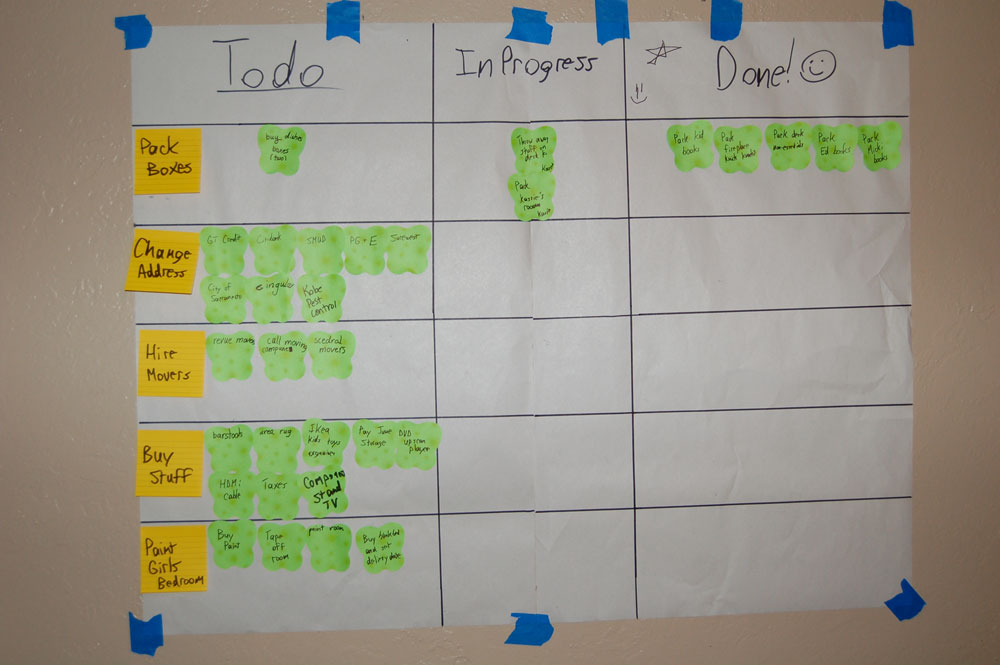 Todo
In Progress
Done!
Pack
Boxes
buy dishes
boxes
(two)
Throw away
stuff in
desk
Kurt
Pack
room
Kurt
Pack kid
books
Pack
fireplace
books
Pack desk
Pack
Ed books
Pack
Micki
books
Change
Address
GT Credit
Citibank
SMUD
PG+E
Surewest
City of
Sacramento
cingular
Kobe
Pest
Control
Hire
Movers
movers
call moving
companies
movers
Buy
Stuff
barstools
area rug
Ikea
kids toys
organizer
Pay June
Storage
DVD
upscan
player
HDMi
Cable
Taxes
Component
Stand
TV
Paint
Girls
Bedroom
Buy
Paint
Tape
off
room
paint room
Buy
and set
date